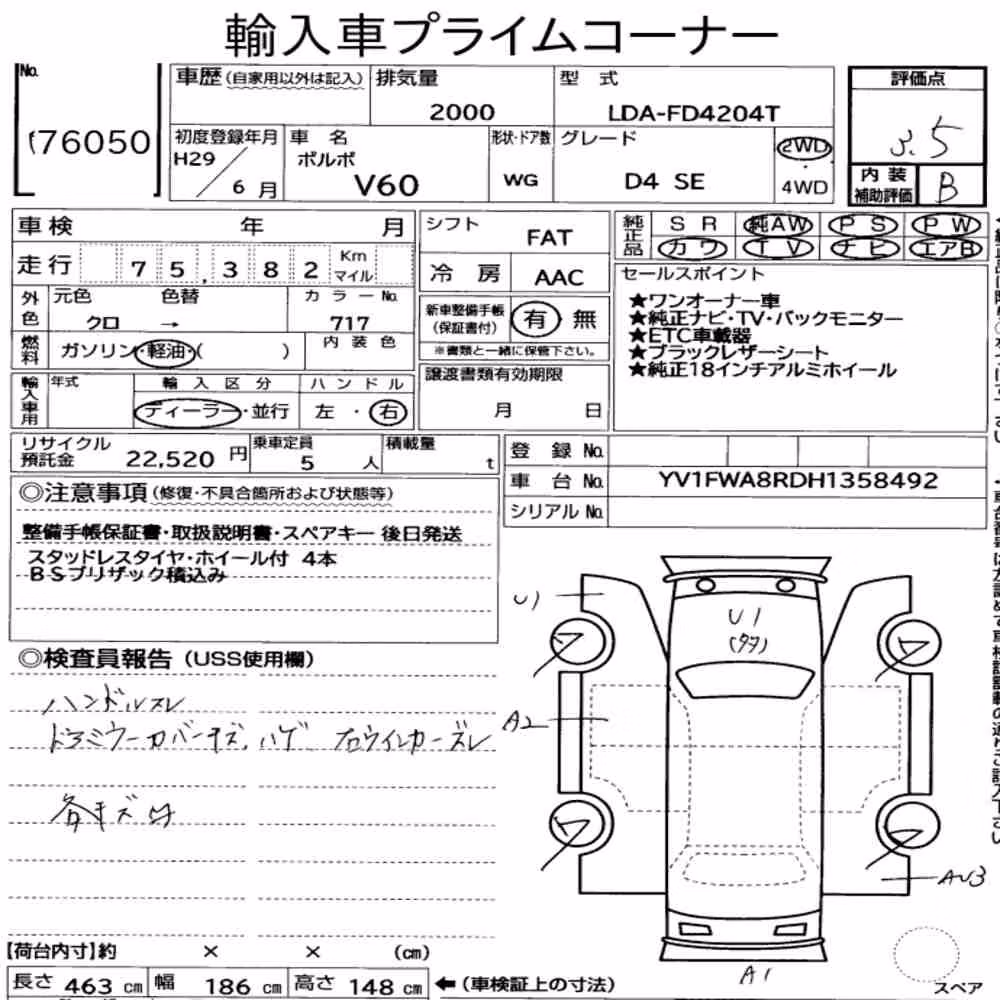 輸入車プライムコーナー
No.
76050
車歴(自家用以外は記入)
排気量
2000
型 式
LDA-FD4204T
評価点
3.5
内装
補助評価
B
初度登録年月
H29
6 月
車 名
ボルボ
V60
形状・ドア数
WG
グレード
D4 SE
2WD
・
4WD
車検 年 月
走行 75,382 Km
マイル
シフト
FAT
冷 房
AAC
純正品
SR 純AW PS PW
カワ TV ナビ エアB
外色
元色 色替 カラーNo.
クロ → 717
燃料
ガソリン・軽油・( )
内装色
新車整備手帳
(保証書付)
有 無
※書類と一緒に保管下さい。
セールスポイント
★ワンオーナー車
★純正ナビ・TV・バックモニター
★ETC車載器
★ブラックレザーシート
★純正18インチアルミホイール
輸入車用
年式
輸入区分
ディーラー・並行
ハンドル
左・右
譲渡書類有効期限
月 日
リサイクル
預託金
22,520 円
乗車定員
5 人
積載量
t
登 録 No.
車 台 No.
YV1FWA8RDH1358492
シリアル No.
◎注意事項(修復・不具合箇所および状態等)
整備手帳保証書・取扱説明書・スペアキー 後日発送
スタッドレスタイヤ・ホイール付 4本
BSブリザック積込み
◎検査員報告(USS使用欄)
ハンドルスレ
ドアミラーカバーキズ、ハゲ 右ウインカースレ
各キズ凹
U1
U1
A2
A1
スペア
【荷台内寸】約 × × (cm)
長さ 463 cm 幅 186 cm 高さ 148 cm ←(車検証上の寸法)